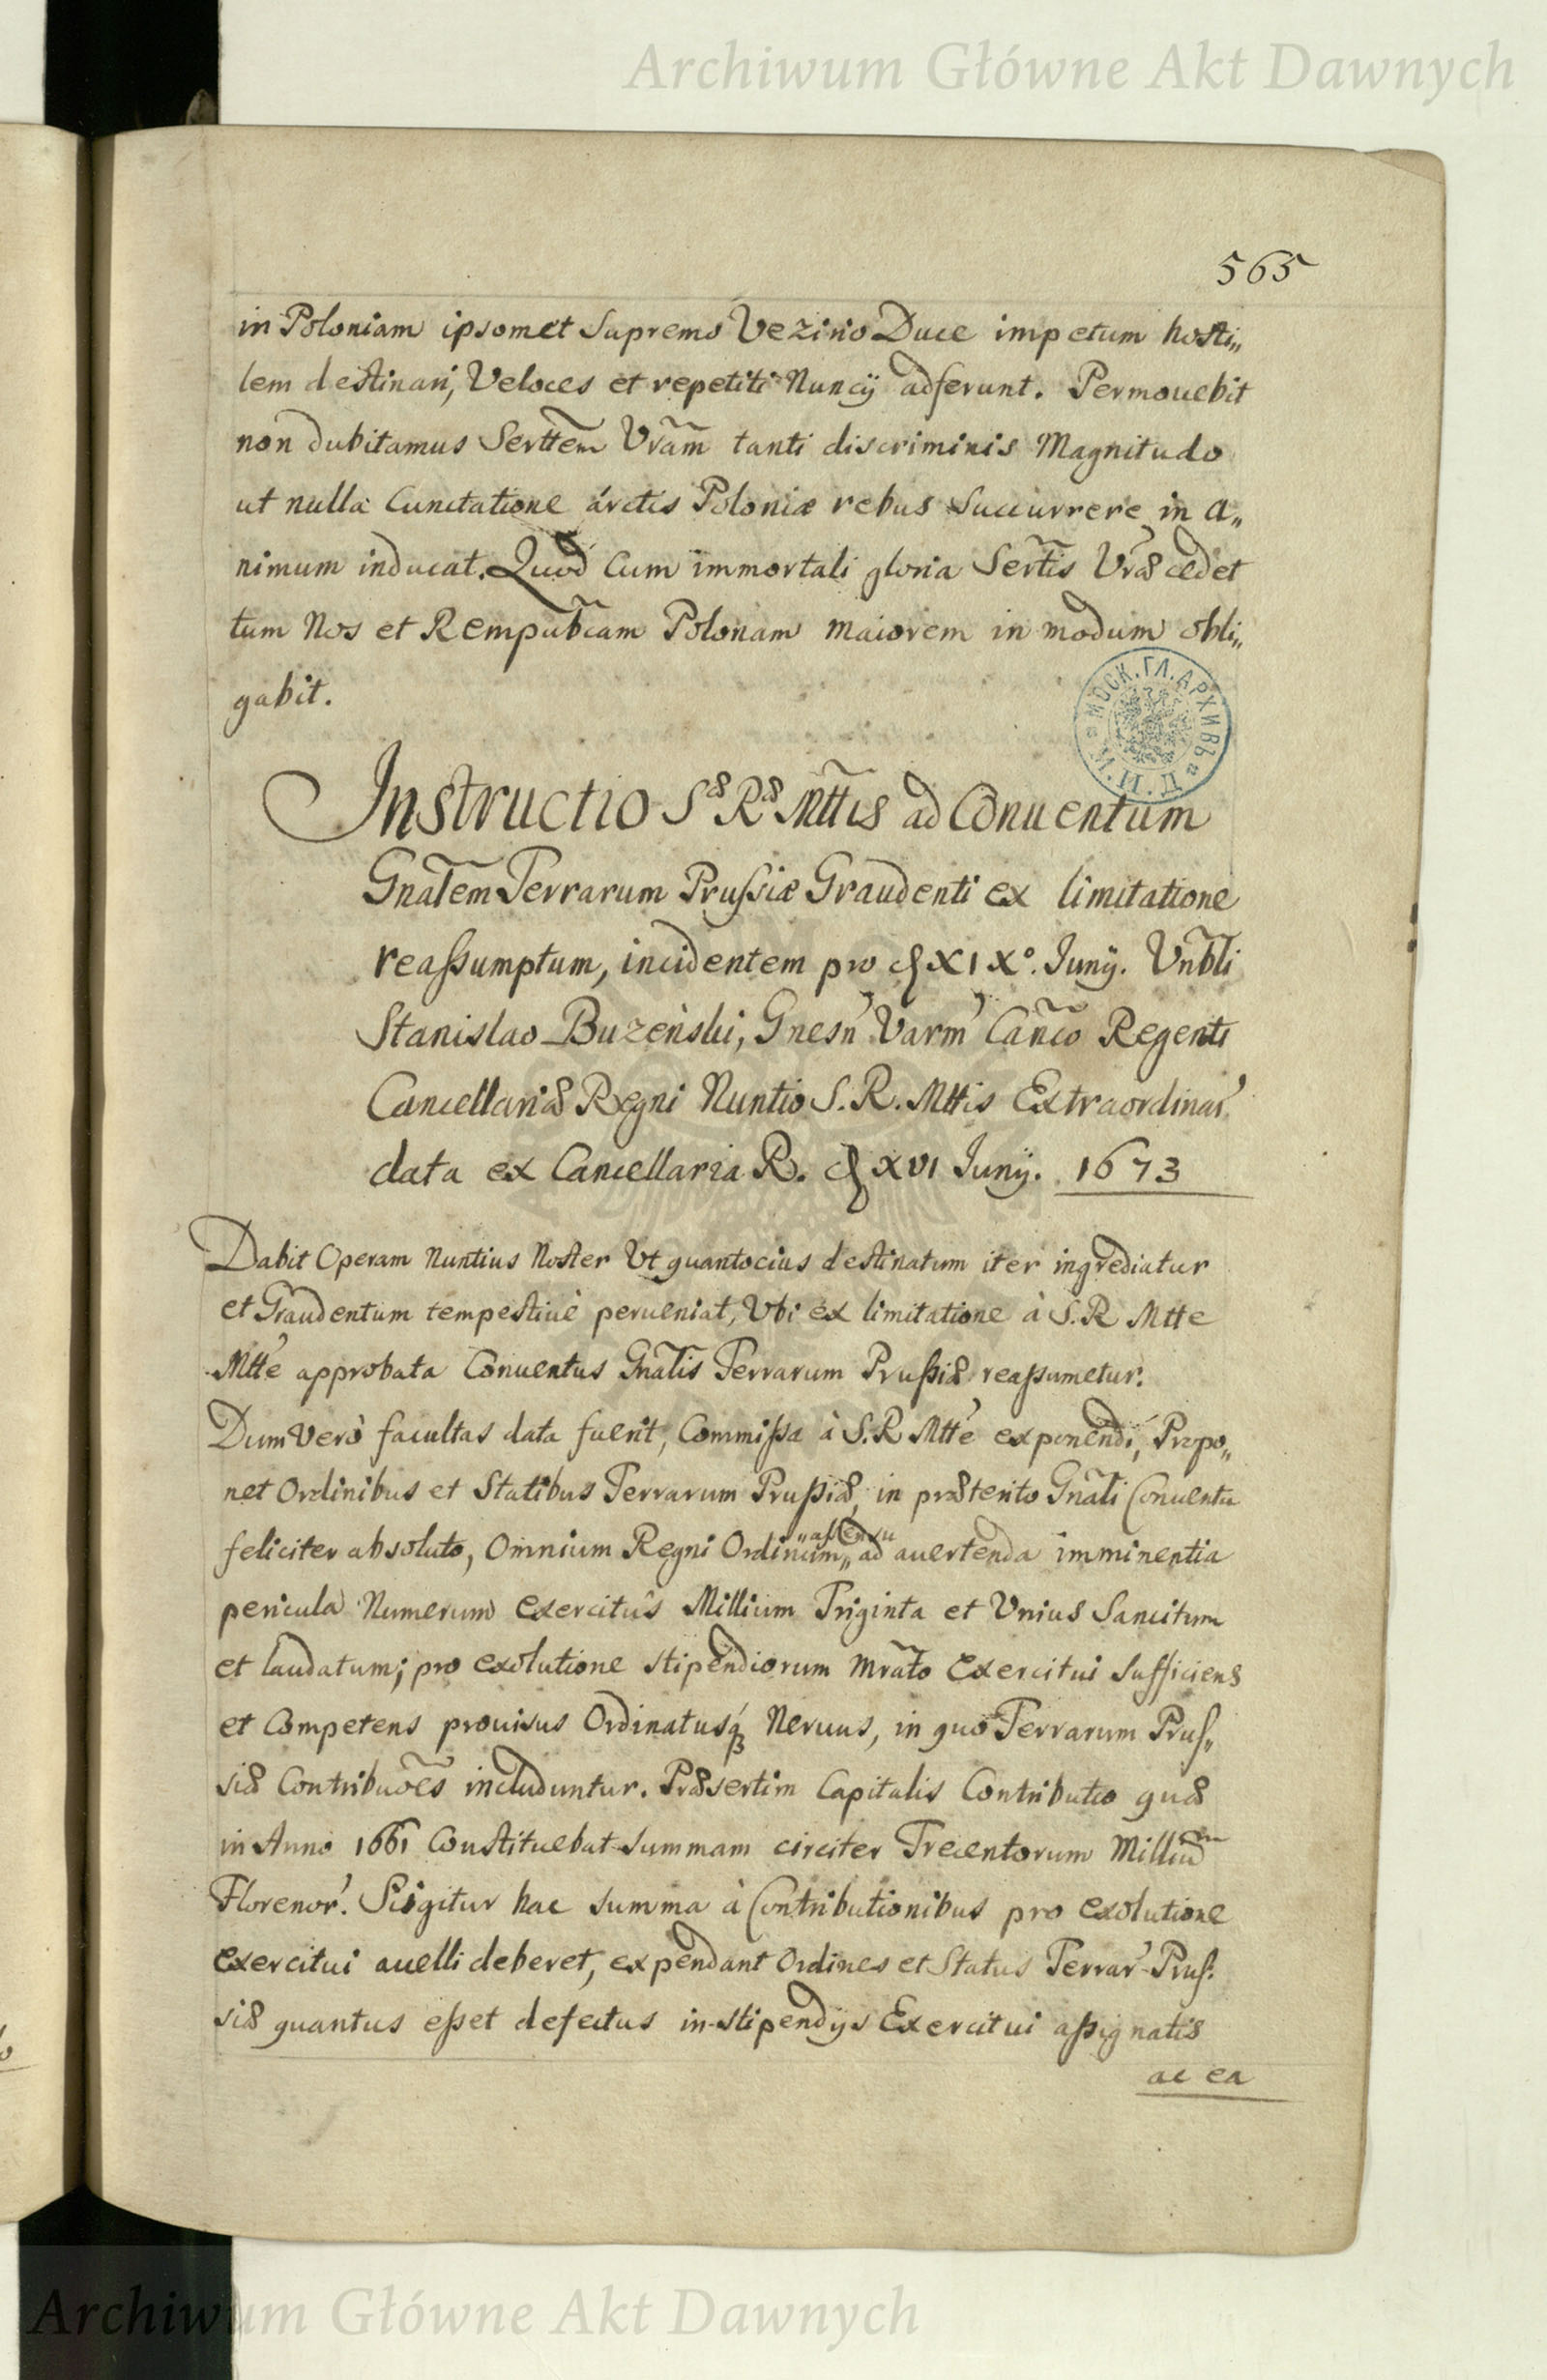 Archiwum Główne Akt Dawnych
565
in Poloniam ipsomet Supremo Vezirio Duce impetum hosti„
lem destinari, Veloces et repetiti Nuncÿ adferunt. Permouebit
non dubitamus Serttem Vram tanti discriminis Magnitudo
ut nullà Cunctatione árctis Poloniæ rebus Succurrere in a„
nimum inducat. Quod Cum immortali gloria Sertis Vræ cedet
tum Nos et Rempubcam Polonam maiorem in modum obli„
gabit.
МОСК.ГЛ.АРХИВЪ
Instructio Sæ Ræ Mttis ad Conuentum
Gnalem Terrarum Prussiæ Graudenti ex limitatione
reassumptum, incidentem pro d XIXº. Iunÿ. Vnbli
Stanislao Buzeński, Gnesn' Varm' Canco Regenti
Cancellariæ Regni Nuntio S. R. Mttis Extraordinar'
data ex Cancellaria R. d XVI Iunÿ. 1673
Dabit Operam Nuntius Noster Vt quantocius destinatum iter ingrediatur
et Graudentum tempestiuè perueniat, Vbi ex limitatione à S. R Mtte
Mtte approbata Conuentus Gnalis Terrarum Prussiæ reassumetur.
Dum Verò facultas data fuerit, Commissa à S. R Mtte exponendi, Propo„
net Ordinibus et Statibus Terrarum Prussiæ, in præterito Gnali Conuentu
feliciter absoluto, Omnium Regni Ordinum „assensu„ ad auertenda imminentia
pericula Numerum Exercitûs Millium Triginta et Vnius Sancitum
et laudatum; pro exolutione stipendiorum mrato Exercitui Sufficiens
et Competens prouisus Ordinatusq Neruus, in quo Terrarum Prus„
siæ Contribuoes includuntur. Præsertim Capitalis Contributio quæ
in Anno 1661 Constituebat Summam circiter Trecentorum Millium
Florenor'. Si igitur hac summa à Contributionibus pro exolutione
exercitui auelli deberet, expendant Ordines et Status Terrar' Prus„
siæ quantus esset defectus in stipendÿs Exercitui assignatis
ac ea
Archiwum Główne Akt Dawnych